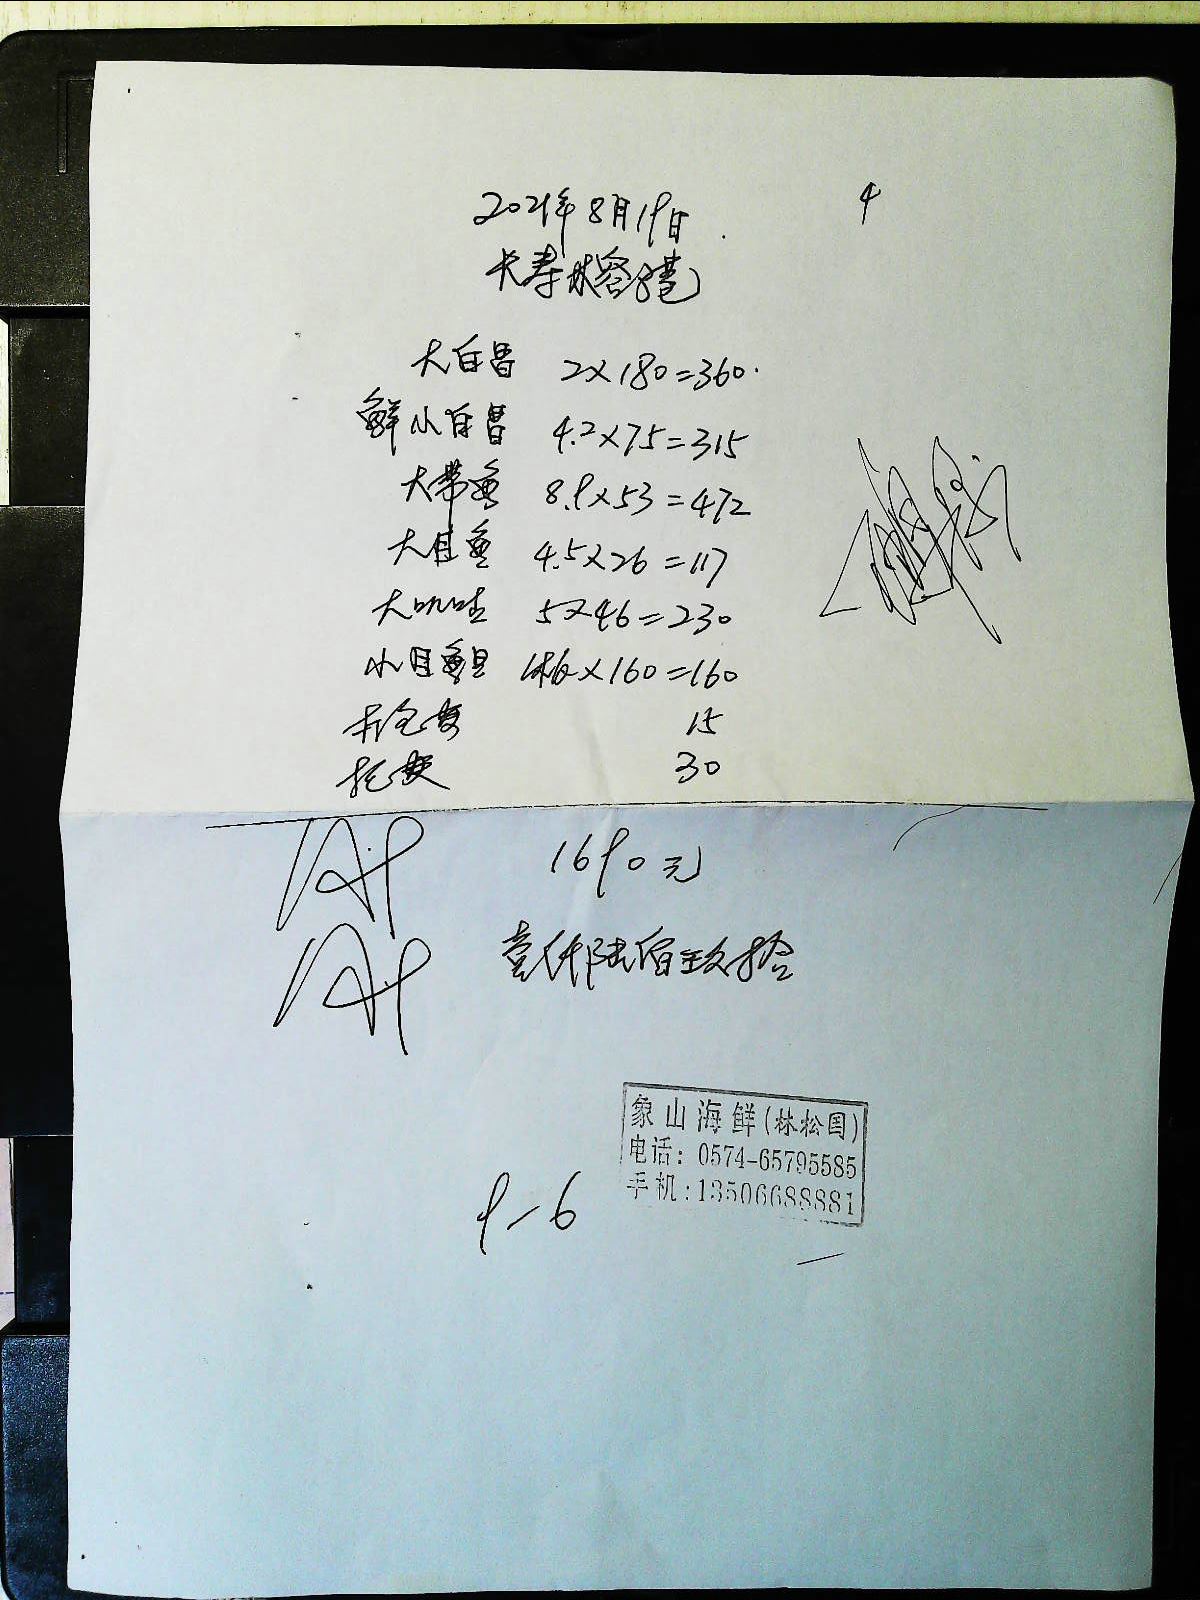 2021年8月19日
4
大白昌 2×180=360
鲜小白昌 4.2×75=315
大带鱼 8.9×53=472
大目鱼 4.5×26=117
大 5×46=230
小目鱼旦 ×160=160
打包费 15
托费 30
1690元
壹仟陆佰玖拾
象山海鲜(林松国)
电话: 0574-65795585
手机:13506688881
9-6